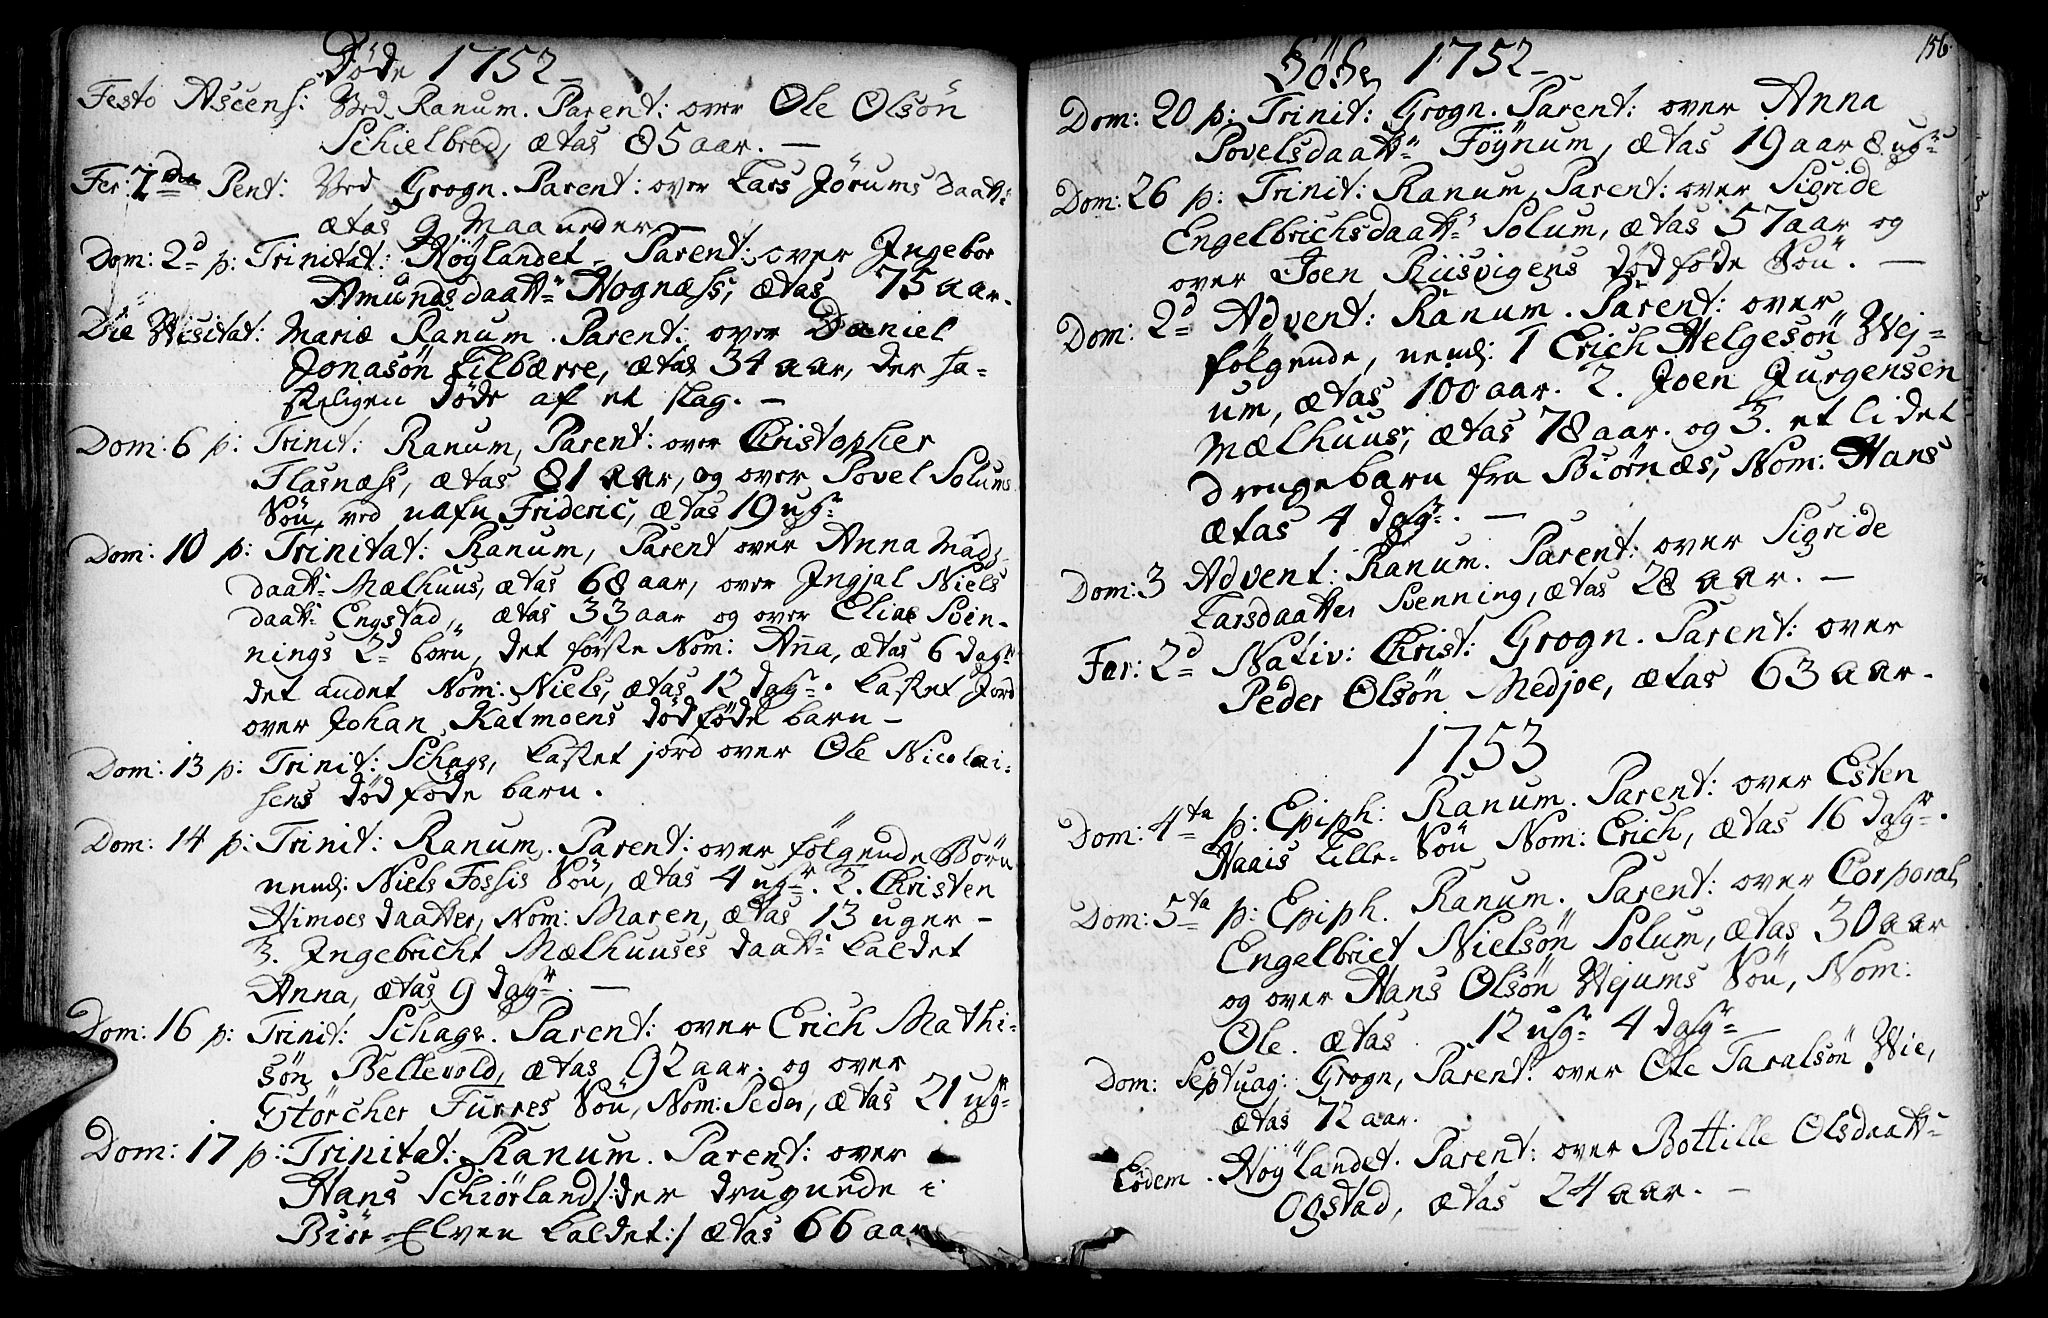 Døde 1752
Festo Ascens: Ved Ranum. Parent: over Ole Olsön
Schielbred, ætas 85 aar. —
Fer: 2da Pent: Ved Grogn. Parent: over Lars Jörums Daatt:
ætas 9 Maaneder —
Dom: 2d p: Trinitat: Höylandet. Parent: over Ingebor
Amundsdaattr Hognæss, ætas 75 aar.
Die Visitat: Mariæ Ranum. Parent: over Daniel
Jonasön Lilbærre, ætas 34 aar, der ha-
steligen döde af et slag. —
Dom: 6 p: Trinit: Ranum, Parent: over Christopher
Flasnæss, ætas 81 aar, og over Povel Solums
Sön, ved nafn Frideric, ætas 19 ugr
Dom: 10 p: Trinitat: Ranum, Parent over Anna Mads-
daattr Mælhuus, ætas 68 aar, over Ingjal Niels
daattr Engstad, ætas 33 aar og over Elias Svin-
nings 2d börn, det förste Nom: Anna, ætas 6 dagr
det andet Nom: Niels, ætas 12 dagr. Kastet Jord
over Johan Katmoens dödföde barn —
Dom: 13 p: Trinit: Schage, kastet jord over Ole Nicolai-
sens dödföde barn.
Dom: 14 p: Trinit: Ranum. Parent: over fölgende Börn
neml: Niels Fossis Sön, ætas 4 ugr. 2. Christen
Himoes daatter, Nom: Maren, ætas 13 uger —
3. Ingebricht Mælhuuses daattr kaldet
Anna, ætas 9 dagr. —
Dom: 16 p: Trinit: Schage. Parent: over Erich Mathi-
sön Bellevold, ætas 92 aar. og over
Störcher Furres Sön, Nom: Peder, ætas 21 ugr
Dom: 17 p: Trinitat: Ranum. Parent: over
Hans Schiörland /: der druknede i
Biör-Elven kaldet :/ ætas 66 aar
156.
Döde 1752
Dom: 20 p: Trinit: Grogn. Parent: over Anna
Povelsdaattr Föynum, ætas 19 aar 8 ugr
Dom: 26 p: Trinit: Ranum, Parent: over Sigride
Engelbrichsdaattr Solum, ætas 57 aar og
over Joen Riisvigens dödföde Sön. —
Dom: 2d Advent: Ranum. Parent: over
fölgende, neml: 1 Erich Helgesön Wej-
um, ætas 100 aar. 2. Joen Jurgensen
Mælhuus, ætas 78 aar. og 3. et lidet
Drengebarn fra Biörnæs, Nom: Hans
ætas 4 dagr. —
Dom: 3 Advent: Ranum. Parent: over Sigride
Larsdaatter Svenning, ætas 28 aar. —
Fer: 2d Nativ: Christ: Grogn. Parent: over
Peder Olsön Medjoe, ætas 63 aar.
1753
Dom: 4ta p: Epiph: Ranum. Parent: over Esten
Haais Lille-Sön Nom: Erich, ætas 16 dagr.
Dom: 5ta p: Epiph. Ranum. Parent: over Corporal
Engelbriet Nielsön Solum, ætas 30 aar
og over Hans Olsön Wejums Sön, Nom:
Ole. ætas. 12 ugr 4 dagr —
Dom: Septuag: Grogn, Parent: over Ole Taralsön Wie,
ætas 72 aar.
Eodem. Höylandet. Parent: over Bottille Olsdaattr
Ogstad, ætas 24 aar. —